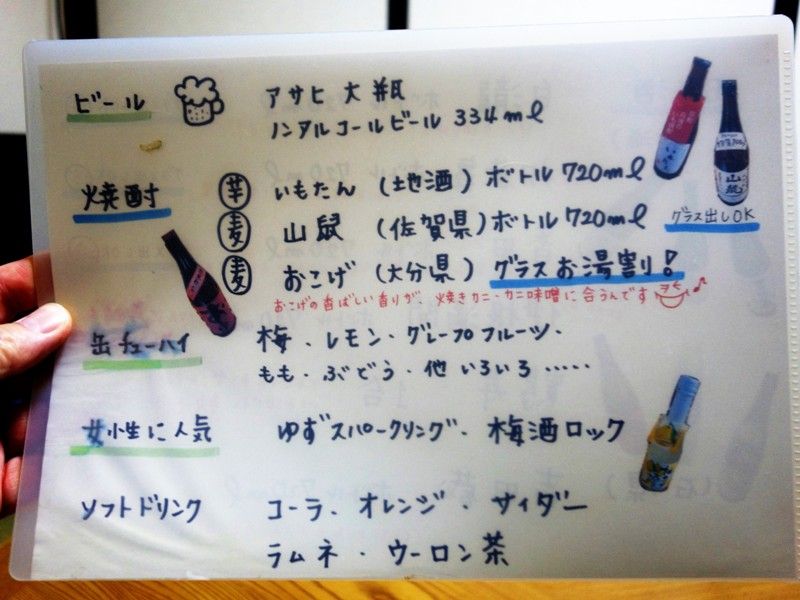 ビール アサヒ 大瓶
ノンアルコールビール 334ml
焼酎 芋 いもたん (地酒) ボトル 720ml
麦 山鼠 (佐賀県) ボトル 720ml グラス出しOK
麦 おこげ (大分県) グラスお湯割!
おこげの香ばしい香りが、焼きカニ・カニ味噌に合うんです♪
缶チューハイ 梅・レモン・グレープフルーツ・
もも・ぶどう・他 いろいろ.....
女性に人気 ゆずスパークリング・梅酒ロック
ソフトドリンク コーラ・オレンジ・サイダー
ラムネ・ウーロン茶